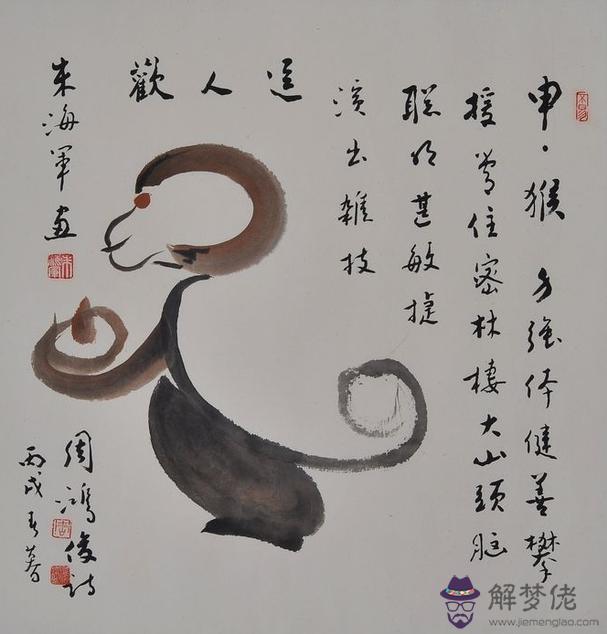 申·猴 力强体健善攀
援常住密林棲大山頭脑
聪明甚敏捷
演出雜技
逗人歡
朱海军画
周鸿俊诗
丙戌春暮
解梦佬
www.jiemenglao.com